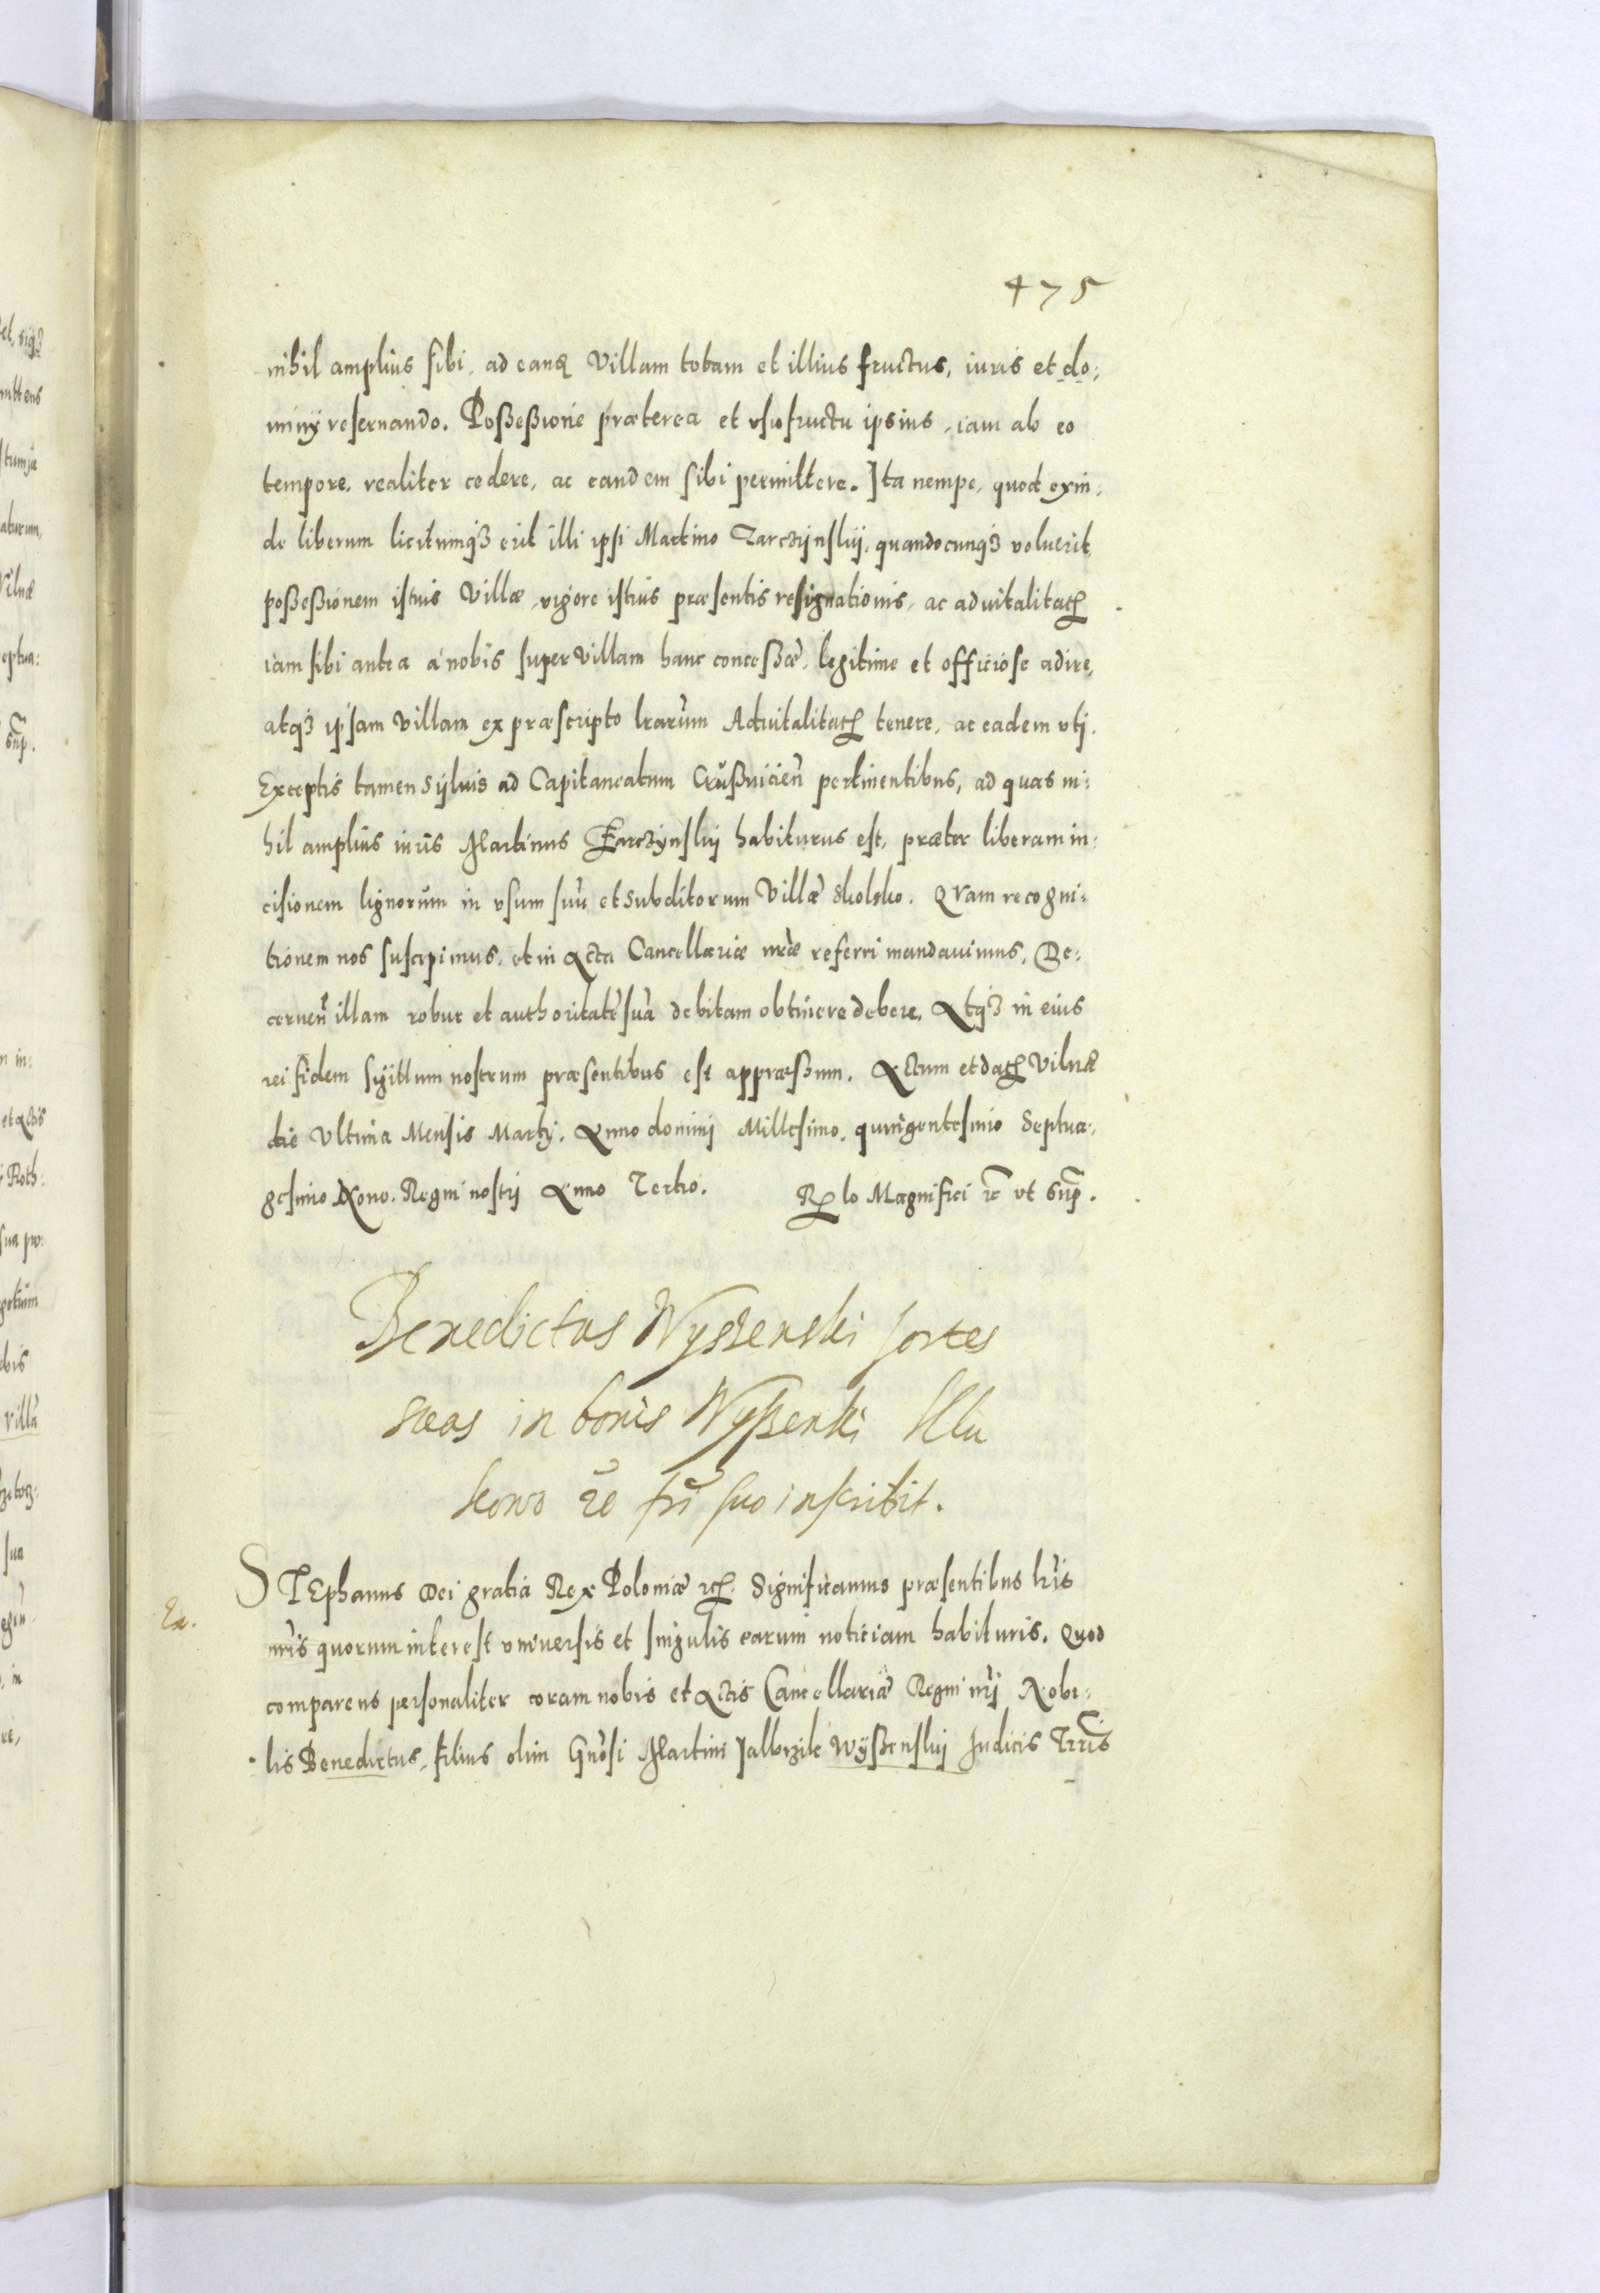 475
nihil amplius sibi, ad eanq Villam totam et illius fructus, iuris et do:
minij reseruando. Poßeßione præterea et vsufructu ipsius, iam ab eo
tempore, realiter cedere, ac eandem sibi permittere. Ita nempe, quod exin:
de liberum licitumq3 erit illi ipsi Martino Tarczijnskij, quandocunq3 voluerit,
poßeßionem istius Villæ, vigore istius præsentis resignationis, ac aduitalitatꝭ
iam sibi antea à nobis super Villam hanc conceßæ, legitime et officiose adire,
atq3 ipsam Villam ex præscripto lrarum Aduitalitatꝭ tenere, ac eadem vti.
Exceptis tamen Syluis ad Capitaneatum Crußuicien pertinentibus, ad quas ni:
hil amplius iuris Martinus Tarczÿnskij habiturus est, præter liberam in:
cisionem lignorum in vsum suũ et subditorum Villæ Skolsko. Quam recogni:
tionem nos suscipimus, et in Acta Cancellariæ nræ referri mandauimus, De:
cernen illam robur et authoritatẽ suã debitam obtinere debere. Atq3 in eius
rei fidem sigillum nostrum præsentibus est appræßum. Actum et datꝭ Vilnæ
die Vltima Mensis Martij. Anno domini Millesimo, quingentesimo Septua:
gesimo Nono. Regni nostri Anno Tertio. Rꝑlo Magnifici ꝛc vt sup.
Benedictus Wyßenski sortes
suas in bonis Wyßenki Klu
kowo ꝛc fri suo inscribit.
Ra.
STEphanus Dei gratia Rex Poloniæ ꝛcꝭ. Significamus præsentibus lris
nris quorum interest vniuersis et singulis earum noticiam habituris. Quod
comparens personaliter coram nobis et Actis Cancellariæ Regni nri Nobi:
lis Benedictus, filius olim Gnosi Martini Jalbrzik Wyßenskij Judicis Trris